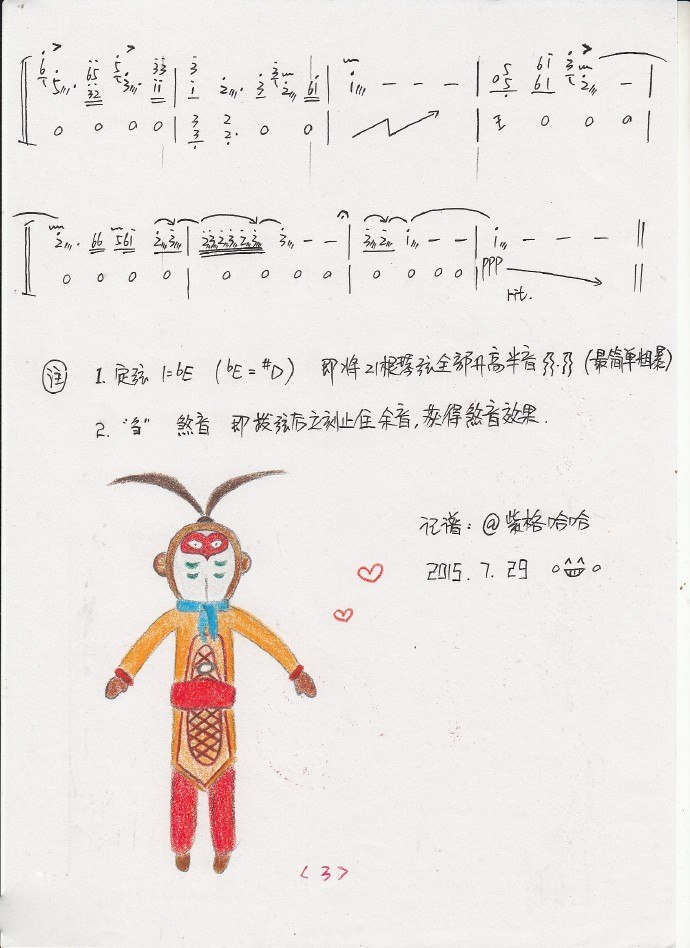 6 5 65 32 5 3 33 11 | 3 1 2. 3 3 2 61 | 1 - - - | 05 5 61 61 3 2 - |
0 0 0 0 | 3 3 2 2 0 0 | 0 0 0
2. 66 561 2 3 | 232323 3 - - | 3 2 1 - - | 1 - - - ||
0 0 0 0 | 0 0 0 0 | 0 0 0 0 | ppp ||
rit.
注 1. 定弦 1=bE (bE = #D) 即将21根琴弦全部升高半音 (最简单粗暴)
2. 煞音 即拨弦后立刻止住余音,获得煞音效果.
记谱: @紫格哈哈
2015. 7. 29
<3>